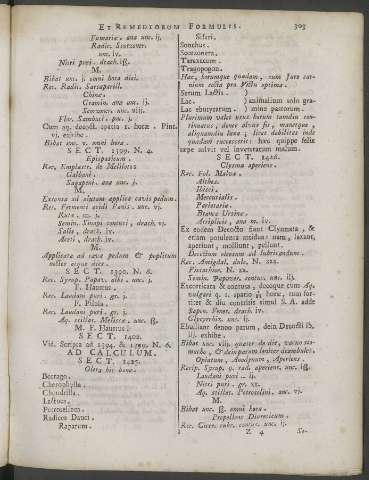 ET REMEDIORUM FORMULIS. 303
Fumariæ. ana unc. ij.
Radic. Scorzoner.
unc. iv.
Nitri puri. drach. iß.
M.
Bibat unc. j. omni hora diei.
Rec. Radic. Sarsaparill.
Chinæ.
Gramin. ana unc. ij.
Scorzoner. unc. viij.
Flor. Sambuci. puc. j.
Cum aq. decoct. spatio horæ. Pint.
vj. exhibe.
Bibat unc. v. omni hora.
SECT. 1399. N. 4.
Epispasticum.
Rec. Emplastr. de Meliloto
Galbani.
Sagapeni. ana unc. j.
M.
Extensa ad alutam applica cavis pedum.
Rec. Fermenti acidi Panis. unc. vj.
Rutæ. m. j.
Semin. Sinapi contusi, drach. vj.
Salis, drach. iv.
Aceti, drach. iv.
M.
Applicata ad cava pedum & poplitum
SECT. 1390. N. 6.
Rec. Syrup. Papav. albi. unc. j.
F. Haustus.
Rec. Laudani puri. gr. j.
F. Pilula.
Rec. Laudani puri. gr. j.
Aq. stillat. Melissæ. unc. ß.
M. F. Haustus.
SECT. 1402.
Vid. Scripta ad 1394. & 1399. N. 6.
AD CALCULUM.
SECT. 1425.
Olera his bona.
Borrago.
Cherophylla.
Chondrilla.
Lactuca.
Petroselinum.
Radices Dauci.
Raparum.
Siseri.
Sonchus.
Scorzonera.
Taraxacum.
Tragopogon.
Hæc, horumque quædam, cum Jure car-
nium cocta pro Victu optima.
Serum Lactis.
Lac } animalium solo gra-
Lac ebutyratum. } mine pastorum.
Plurimum valet usus horum tamdiu con-
tinuatus, donec alvus fit, maneatque,
aliquamdiu laxa; licet debilitas inde
quædam successerit: hoc quippe felix
sæpe solvit vel inveteratum malum.
SECT. 1426.
Clysma aperiens.
Rec. Fol. Malvæ.
Altheæ.
Ibisci.
Mercurialis.
Parietariæ.
Brancæ Ursinæ.
Atriplicis, ana m. iv.
Ex eodem Decocto fiant Clysmata, &
etiam potulenta insidus: nam, laxant,
aperiunt, molliunt, pellunt.
Decoctum oleosum ad lubricandum.
Rec. Amigdal. dulc. N. xxx.
Pistachior. N. xx.
Semin. Papaver. contus. unc. iij.
Excorticata & contusa, decoque cum Aq.
vulgari q. s. spatio horæ, tum for-
titer & diu contritis simul S. A. adde
Sapon. Venet. drach. iv.
Glycyrrhiz. unc. ij.
Ebulliant denuo parum, dein Decocti lb.
iij. exhibe.
Bibat unc. viij. quater de die, vacuo sto-
macho, & dein parum leniter deambulet.
Opiatum, Anodynum, Aperiens.
Recip. Syrup. 5. rad. aperient. unc. iß.
Laudani puri. ij.
Nitri puri. gr. xx.
Aq. stillat. Petroselini. unc. vj.
M.
Bibat unc. ß. omni hora.
Propellens Diureticum.
Rec. Cicer. rubr. contus. unc. ij.
Z 4 Se-